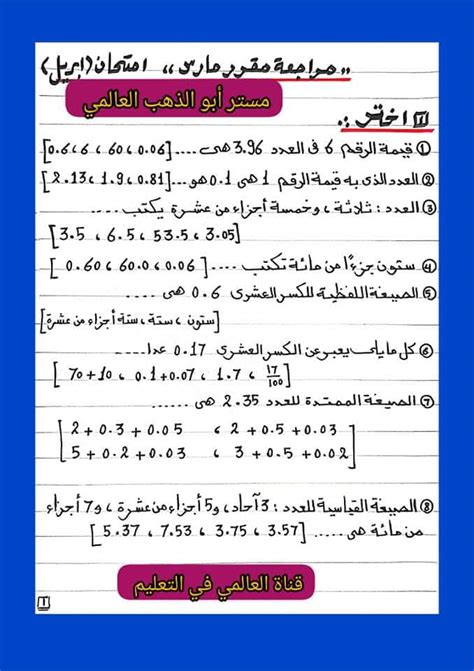 ,, مراجعة مقرر مارس ,, امتحان (ابريل)
مستر أبو الذهب العالمي
1 اختر :.
① قيمة الرقم 6 فى العدد 3.96 هى .... [0.6 ، 6 ، 60 ، 0.06]
② العدد الذى به قيمة الرقم 1 هى 0.1 هو .... [2.13 ، 1.9 ، 0.81]
③ العدد : ثلاثة ، وخمسة أجزاء من عشرة يكتب ....
[3.5 ، 6.5 ، 53.5 ، 3.05]
④ ستون جزءًا من مائة تكتب .... [0.60 ، 60.0 ، 0.06]
⑤ الصيغة اللفظية للكسر العشرى 0.6 هى ....
[ستون ، ستة ، ستة أجزاء من عشرة]
⑥ كل ما يلى يعبر عن الكسر العشرى 0.17 عدا ....
[70+10 ، 0.1+0.07 ، 1.7 ، 17/100]
⑦ الصيغة الممتدة للعدد 2.35 هى ....
[2+0.3+0.05 ، 2+0.5+0.03
5+0.2+0.03 ، 3+0.5+0.02]
⑧ الصيغة القياسية للعدد : 3 آحاد ، و5 أجزاء من عشرة ، و7 أجزاء
من مائة هى .... [5.37 ، 7.53 ، 3.75 ، 3.57]
قناة العالمي في التعليم
1